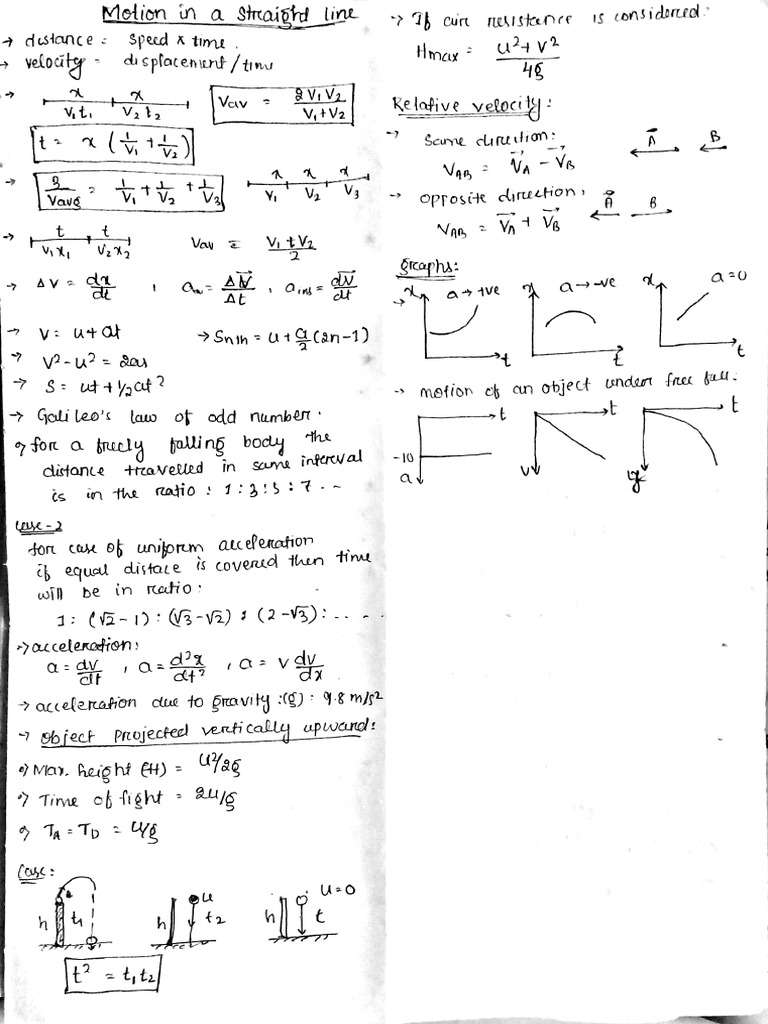 Motion in a straight line
→ distance = speed × time.
→ velocity = displacement / time
→ x x
V₁t₁ V₂t₂
Vav = 2V₁V₂ / V₁+V₂
t = x (1/V₁ + 1/V₂)
→ 3/Vavg = 1/V₁ + 1/V₂ + 1/V₃
x x x
V₁ V₂ V₃
→ t t
V₁x₁ V₂x₂
Vav = V₁+V₂ / 2
→ ΔV = dx/dt , aav = ΔV⃗/Δt , ains = dV⃗/dt
→ V = u+at → Snth = u + a/2 (2n-1)
→ V²-u² = 2as
→ S = ut + 1/2at²
→ Galileo's law of odd number.
for a freely falling body the
distance travelled in same interval
is in the ratio : 1:3:5:7 ...
Case-2
for case of uniform acceleration
if equal distace is covered then time
will be in ratio:
1 : (√2-1) : (√3-√2) : (2-√3) : .....
→ acceleration:
a = dv/dt , a = d²x/dt² , a = v dv/dx
→ acceleration due to gravity :(g) : 9.8 m/s²
→ object projected vertically upward:
Max. height (H) = u²/2g
Time of fight = 2u/g
TA = TD = u/g
Case:
h t₁
h u t₂
h u=0 t
t² = t₁t₂
→ If air resistance is considered:
Hmax = u²+v² / 4g
Relative velocity:
→ Same direction:
VAB = V⃗A - V⃗B
A⃗ B
→ opposite direction,
VAB = V⃗A + V⃗B
A⃗ B
graphs:
→ x a→+ve t
x a→-ve t
x a=0 t
→ motion of an object under free fall:
t -10 a
t v
t y